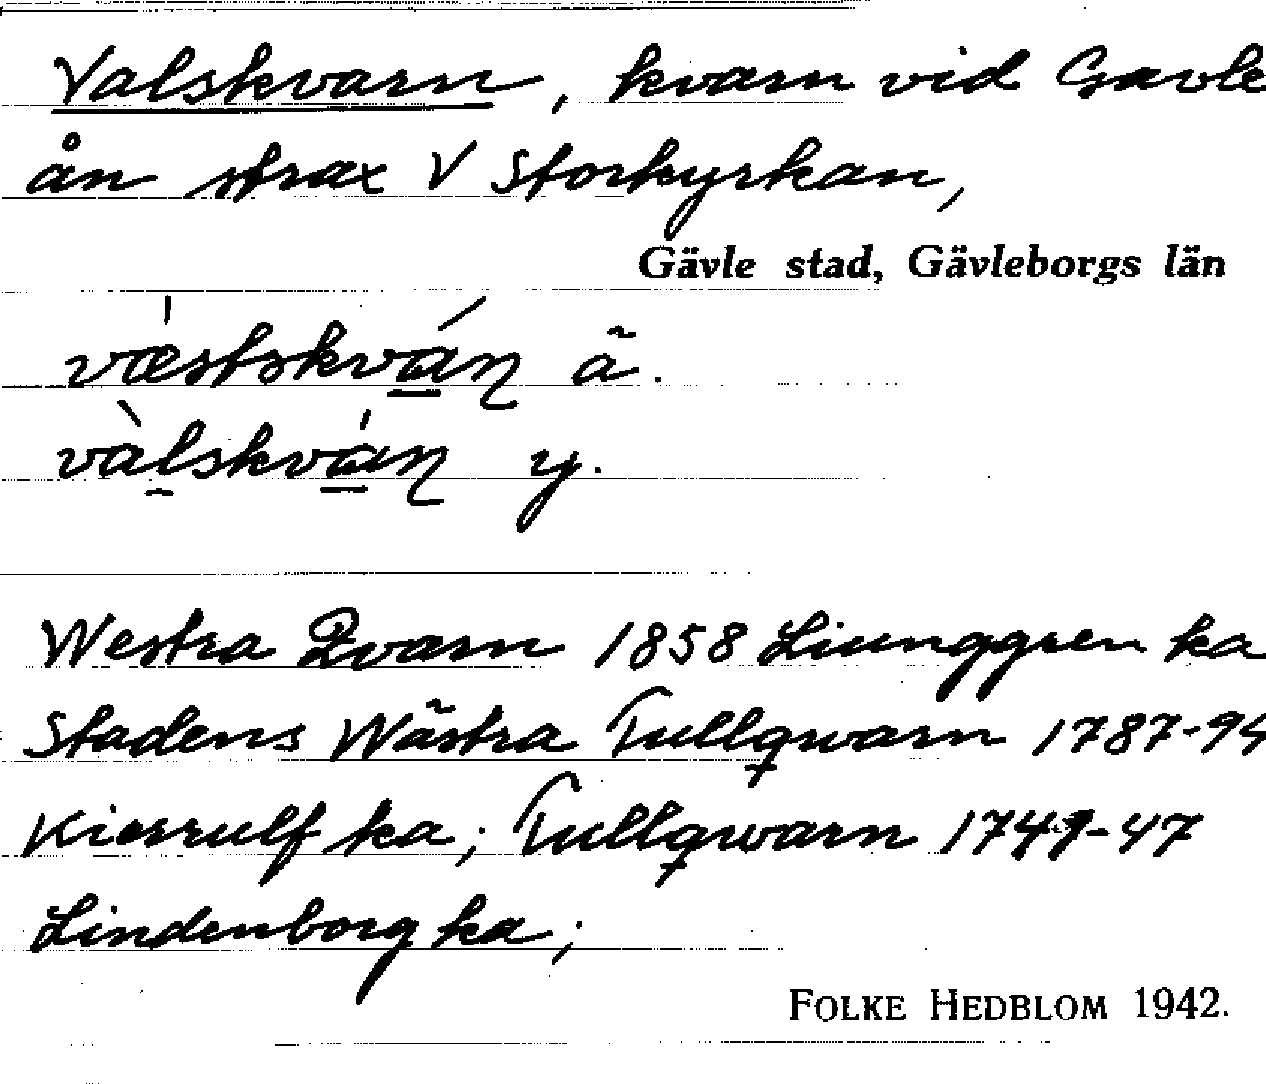 Valskvarn, kvarn vid Gavle
ån strax V Storkyrkan,
Gävle stad, Gävleborgs län
væstskván ä.
vàlskván y.
Westra Qvarn 1858 Liunggren ka
Stadens Wästra Tullqwarn 1787-94
Kierrulf ka; Tullqwarn 1741-47
Lindenborg ka;
FOLKE HEDBLOM 1942.